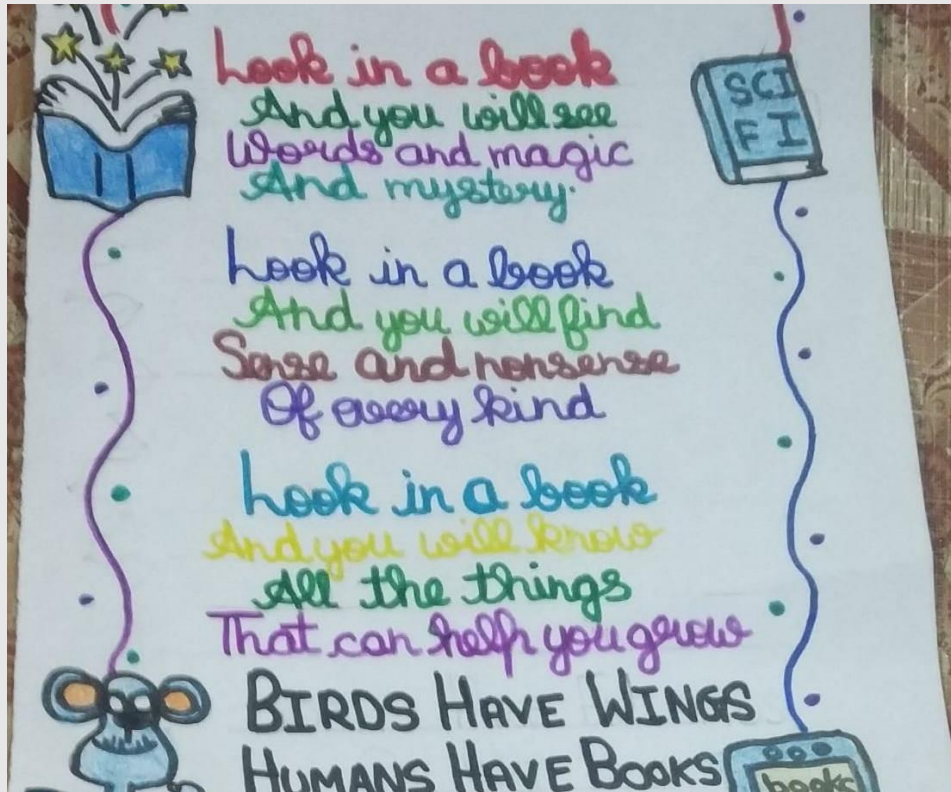 Look in a book
And you will see
Words and magic
And mystery.
Look in a book
And you will find
Sense and nonsense
Of every kind
Look in a book
And you will know
All the things
That can help you grow
BIRDS HAVE WINGS
HUMANS HAVE BOOKS
SCI
FI
books